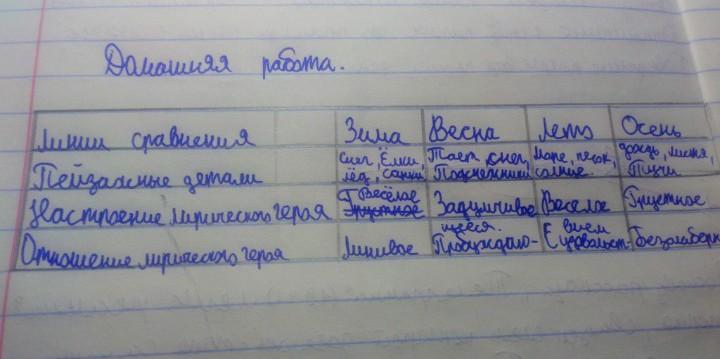 Домашняя работа.
Линии сравнения Зима Весна Лето Осень
Пейзажные детали Снег, Ёлки, лёд, санки Тает снег, Подснежники Море, песок, солнце дождь, листья, Тучи
Настроение лирического героя Весёлое Грустное Задумчивое Веселое Грустное
Отношение лирического героя Ленивое Пробуждаю- щееся. С удовольст- вием Безалаберн